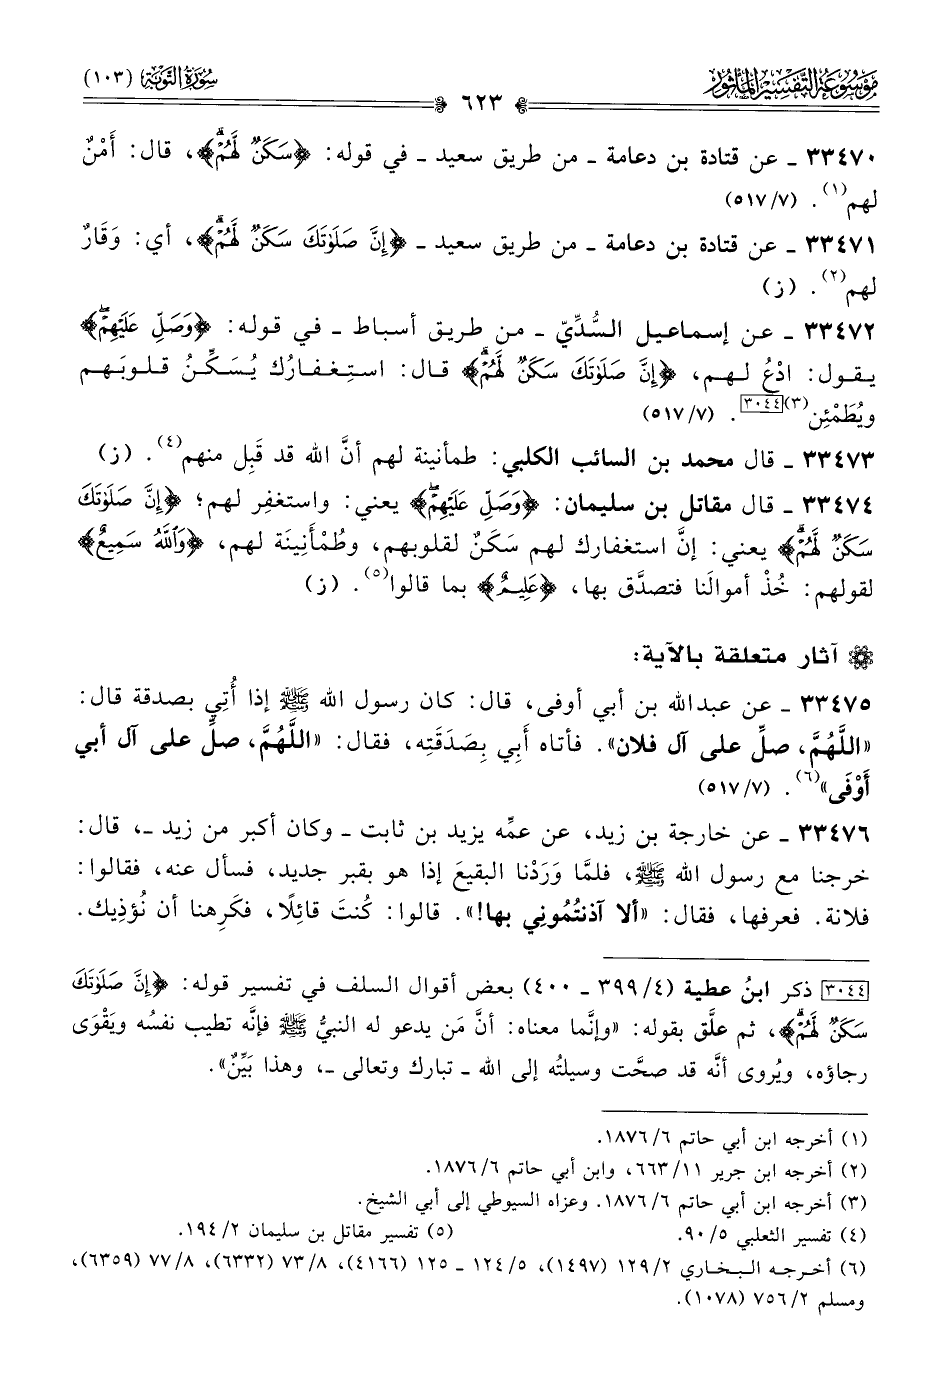 موسوعة التفسير المأثور
سورة التوبة (١٠٣)
٦٢٣
٣٣٤٧٠ ـ عن قتادة بن دعامة ـ من طريق سعيد ـ في قوله: ﴿سَكَنٌ لَّهُمْۗ﴾، قال: أَمْنٌ
لهم(١). (٥١٧/٧)
٣٣٤٧١ ـ عن قتادة بن دعامة ـ من طريق سعيد ـ ﴿إِنَّ صَلَوٰتَكَ سَكَنٌ لَّهُمْۗ﴾، أي: وَقَارٌ
لهم(٢). (ز)
٣٣٤٧٢ ـ عن إسماعيل السُّدِّيّ ـ من طريق أسباط ـ في قوله: ﴿وَصَلِّ عَلَيْهِمْۖ﴾
يقول: ادْعُ لهم، ﴿إِنَّ صَلَوٰتَكَ سَكَنٌ لَّهُمْۗ﴾ قال: استِغفارُك يُسَكِّنُ قلوبَهم
ويُطَمْئِن(٣)[٣٠٤٤]. (٥١٧/٧)
٣٣٤٧٣ ـ قال محمد بن السائب الكلبي: طمأنينة لهم أنَّ الله قد قَبِل منهم(٤). (ز)
٣٣٤٧٤ ـ قال مقاتل بن سليمان: ﴿وَصَلِّ عَلَيْهِمْۖ﴾ يعني: واستغفِر لهم؛ ﴿إِنَّ صَلَوٰتَكَ
سَكَنٌ لَّهُمْۗ﴾ يعني: إنَّ استغفارك لهم سَكَنٌ لقلوبهم، وطُمْأَنِينَة لهم، ﴿وَٱللَّهُ سَمِيعٌ﴾
لقولهم: خُذْ أموالَنا فتصدَّق بها، ﴿عَلِيمٌ﴾ بما قالوا(٥). (ز)
آثار متعلقة بالآية:
٣٣٤٧٥ ـ عن عبدالله بن أبي أوفى، قال: كان رسول الله ﷺ إذا أُتِي بصدقة قال:
«اللَّهُمَّ، صلِّ على آل فلان». فأتاه أَبِي بِصَدَقَتِه، فقال: «اللَّهُمَّ، صلِّ على آل أبي
أَوْفَى»(٦). (٥١٧/٧)
٣٣٤٧٦ ـ عن خارجة بن زيد، عن عمِّه يزيد بن ثابت ـ وكان أكبر من زيد ـ، قال:
خرجنا مع رسول الله ﷺ، فلمَّا وَرَدْنا البقيعَ إذا هو بقبر جديد، فسأل عنه، فقالوا:
فلانة. فعرفها، فقال: «ألا آذنتُمُوني بها!». قالوا: كُنتَ قائِلًا، فكَرِهنا أن نُؤذِيك.
[٣٠٤٤] ذكر ابنُ عطية (٣٩٩/٤ ـ ٤٠٠) بعض أقوال السلف في تفسير قوله: ﴿إِنَّ صَلَوٰتَكَ
سَكَنٌ لَّهُمْۗ﴾، ثم علَّق بقوله: «وإنَّما معناه: أنَّ مَن يدعو له النبيُّ ﷺ فإنَّه تطيب نفسُه ويَقْوَى
رجاؤه، ويُروى أنَّه قد صحَّت وسيلتُه إلى الله ـ تبارك وتعالى ـ، وهذا بَيِّنٌ».
(١) أخرجه ابن أبي حاتم ١٨٧٦/٦.
(٢) أخرجه ابن جرير ٦٦٣/١١، وابن أبي حاتم ١٨٧٦/٦.
(٣) أخرجه ابن أبي حاتم ١٨٧٦/٦. وعزاه السيوطي إلى أبي الشيخ.
(٤) تفسير الثعلبي ٩٠/٥. (٥) تفسير مقاتل بن سليمان ١٩٤/٢.
(٦) أخرجه البخاري ١٢٩/٢ (١٤٩٧)، ١٢٤/٥ ـ ١٢٥ (٤١٦٦)، ٧٣/٨ (٦٣٣٢)، ٧٧/٨ (٦٣٥٩)،
ومسلم ٧٥٦/٢ (١٠٧٨).